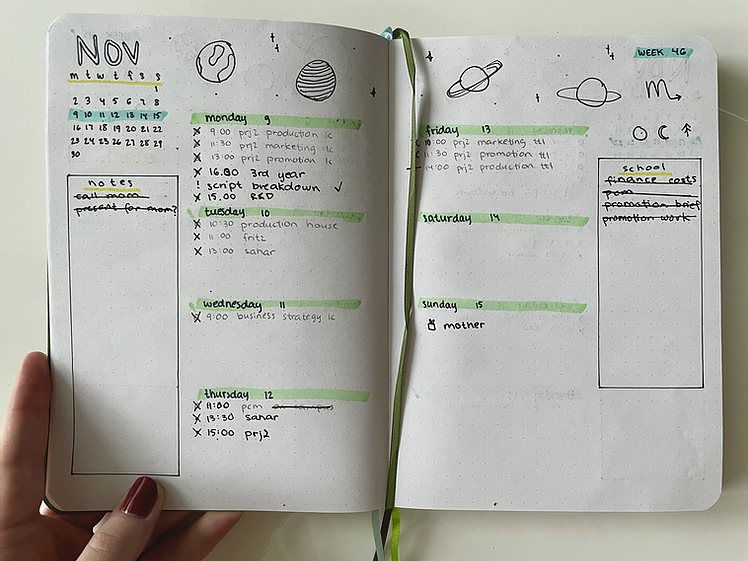 NOV
m t w t f s s
1
2 3 4 5 6 7 8
9 10 11 12 13 14 15
16 17 18 19 20 21 22
23 24 25 26 27 28 29
30
notes
call mom
present for mom?
monday 9
x 9:00 prj2 production lc
x 11:30 prj2 marketing lc
x 13:00 prj2 promotion lc
x 16.00 3rd year
! script breakdown ✓
x 15.00 R&D
tuesday 10
x 10:30 production house
x 11:00 fritz
x 13:00 sahar
wednesday 11
x 9:00 business strategy lc
thursday 12
x 11:00 pcm
x 13:30 sahar
x 15:00 prj2
WEEK 46
friday 13
10:00 prj2 marketing ttl
11:30 prj2 promotion ttl
14:00 prj2 production ttl
saturday 14
sunday 15
mother
school
finance costs
pcm
promotion brief
promotion work